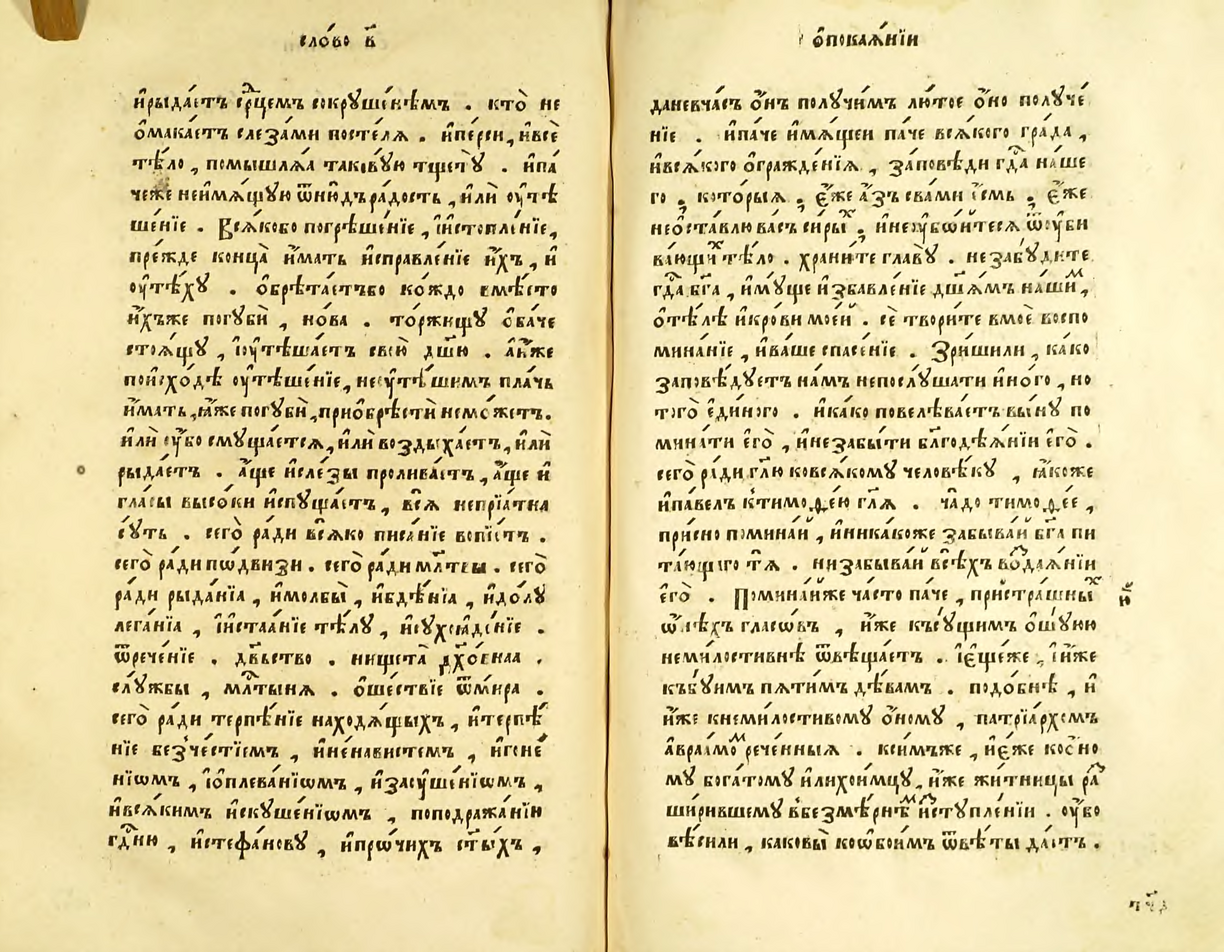 сло́во в҃
и҆рыда́етъ срⷣцемъ сокруше́нѣмъ . кто̀ не
ѡ҆мака́етъ слеза́ми посте́лѧ . и҆пе́рси , и҆всѐ
тѣ́ло , помышлѧ́ѧ такову́ю тщетꙋ̀ . и҆па́
че́же неимѧ́щꙋю ѿню́дъ ра́дость , и҆лѝ оу҆тѣ
ше́нїе . Всѧ́кобо погрѣше́нїе , і҆истопле́нїе ,
пре́жде конца̀ и҆́мать и҆справле́нїе и҆́хъ , и҆
оу҆тѣ́хꙋ . ѡ҆брѣта́етъбо ко́ждо вмѣ́сто
и҆́хъже погꙋбѝ , но́ва . торжищꙋ̀ ѻ҆ба́че
стоѧ́щꙋ , і҆оу҆тѣша́етъ свою̀ дш҃ю . а҆́ꙗже
поисхо́дѣ оу҆тѣше́нїе , неоу҆тѣ́шимъ пла́чь
и҆́мать , ꙗ҆́же погꙋбѝ , приобрѣстѝ немо́жетъ .
и҆лѝ оу҆́бо смꙋща́етсѧ , и҆лѝ воздыха́етъ , и҆лѝ
рыда́етъ . а҆́ще и҆сле́зы пролива́етъ , а҆́ще и҆
гла́сы высо́ки и҆спꙋща́етъ , всѧ̀ непрїѧ́тна
сꙋ́ть . сего̀ ра́ди всѧ́ко писа́нїе вопїе́тъ .
сего̀ ра́ди пѡ́двизи . сего̀ ра́ди млт҃вы . сего̀
ра́ди рыда́нїа , и҆молбы̀ , и҆бдѣ́нїа , и҆до́лꙋ
лега́нїа , і҆истаа́нїе тѣ́лꙋ , и҆сꙋхоꙗде́нїе .
ѿрече́нїе . дв҃ьство . нищета̀ дх҃о́внаа .
слꙋ́жбы , млт҃ынѧ . ѡ҆ше́ствїе ѿми́ра .
сего̀ ра́ди терпѣ́нїе находѧ́щыхъ , и҆терпѣ́
нїе безче́стїемъ , и҆не́навистемъ , и҆гоне́
нїѡмъ , і҆ѡплева́нїѡмъ , и҆заꙋше́нїѡмъ ,
и҆всѧ́кимъ и҆скꙋше́нїѡмъ , поподража́нїю
гдⷭ҇ню , и҆стефа́новꙋ , и҆прѡ́чихъ ст҃ы́хъ ,
ѡ҆покаѧ́нїи
даневча́съ ѻ҆́нъ полꙋ́чимъ лю́тое ѻ҆́но полꙋче́
нїе . и҆па́че и҆мѧ́щеи па́че всѧ́кого гра́да ,
и҆всѧ́кого ѡ҆гражде́нїѧ , за́повѣди гдⷭ҇а на́ше
го , кото́рыѧ , є҆́же а҆́зъ сва́ми є҆́смь , є҆́же
неѡ҆ста́влю ва́съ си́рыⷯ , и҆неꙋбѡ́йтесѧ ѿоу҆би
ва́ющиⷯ тѣ́ло . храни́те главꙋ̀ . незабꙋ́дите
гдⷭ҇а бг҃а , и҆мꙋ́ще и҆збавле́нїе дш҃ѧ́мъ на́шиⷨ ,
ѻ҆тѣ́лѣ и҆кро́ви мое́й . сѐ твори́те вмоѐ воспо
мина́нїе , и҆ва́ше спасе́нїе . Зри́шили , ка́ко
заповѣ́дꙋетъ на́мъ непослꙋ́шати и҆но́го , но
того̀ є҆ди́ного . и҆ка́ко повелѣва́етъ вы́нꙋ по
мина́ти є҆го̀ , и҆незабы́ти бл҃годѣѧ́нїи є҆го̀ .
сего̀ ра́ди гл҃ю ковсѧ́комꙋ человѣ́кꙋ , ꙗ҆́коже
и҆па́велъ ктимоѳе́ю гл҃ѧ . ча́до тимоѳе́е ,
при́сно помина́й , и҆ника́коже забыва́й бг҃а пи
та́ющаго тѧ̀ . низабыва́й всѣ́хъ воⷥдаѧ́нїи
є҆го̀ . Помина́йже ча́сто па́че , пристра́шныⷯ
ѡ҆́нѣхъ гласѡ́въ , и҆́же късꙋ́щимъ ѡ҆шꙋ́юю
неми́лостивнѣ ѿвѣща́етъ . і҆є҆ще́же , і҆и҆́же
къбꙋ́имъ пѧ́тимъ дѣ́вамъ . подо́бнѣ , и҆
и҆́же кнеми́лостивомꙋ ѻ҆́номꙋ , патрїа́рхомъ
а҆враа́моⷨ рече́нныѧ . ксим́ъже , и҆є҆́же коо́но
мꙋ бога́томꙋ и҆лихои́мцꙋ , и҆́же жи́тницы раⷥ
шири́вшемꙋ вбезмѣ́рнѣⷨ и҆стꙋпле́нїи . оу҆́бо
вѣ́сили , каковы̀ коѡбои́мъ ѿвѣ́ты да́етъ .
н҃и